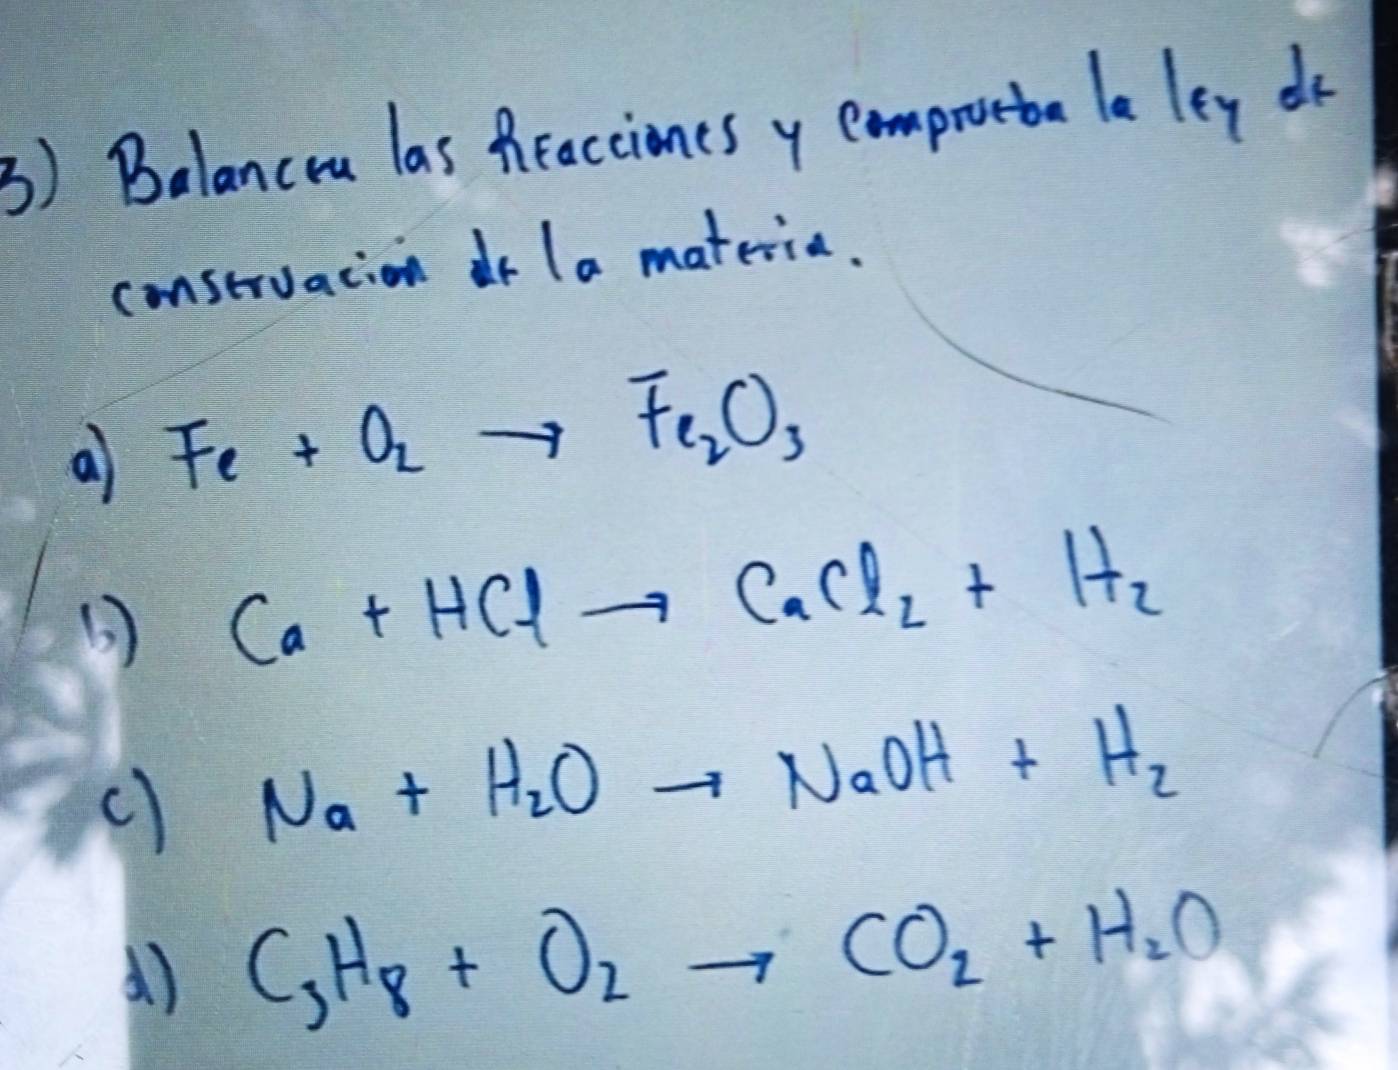 3) Balancea las Reacciones y comprueba la ley de
conservación de la materia.
a) Fe + O₂ → Fe₂O₃
b) Ca + HCl → CaCl₂ + H₂
c) Na + H₂O → NaOH + H₂
d) C₃H₈ + O₂ → CO₂ + H₂O